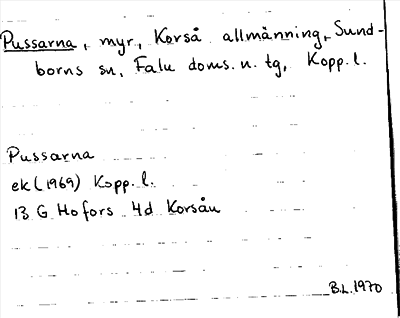 Pussarna, myr, Korså allmänning, Sund-
borns sn, Falu doms. n. tg, Kopp. l.
Pussarna
ek (1969) Kopp. l.
13 G Hofors 4d Korsån
B.L. 1970